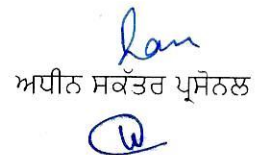 ਅਧੀਨ ਸਕੱਤਰ ਪ੍ਰਸੋਨਲ